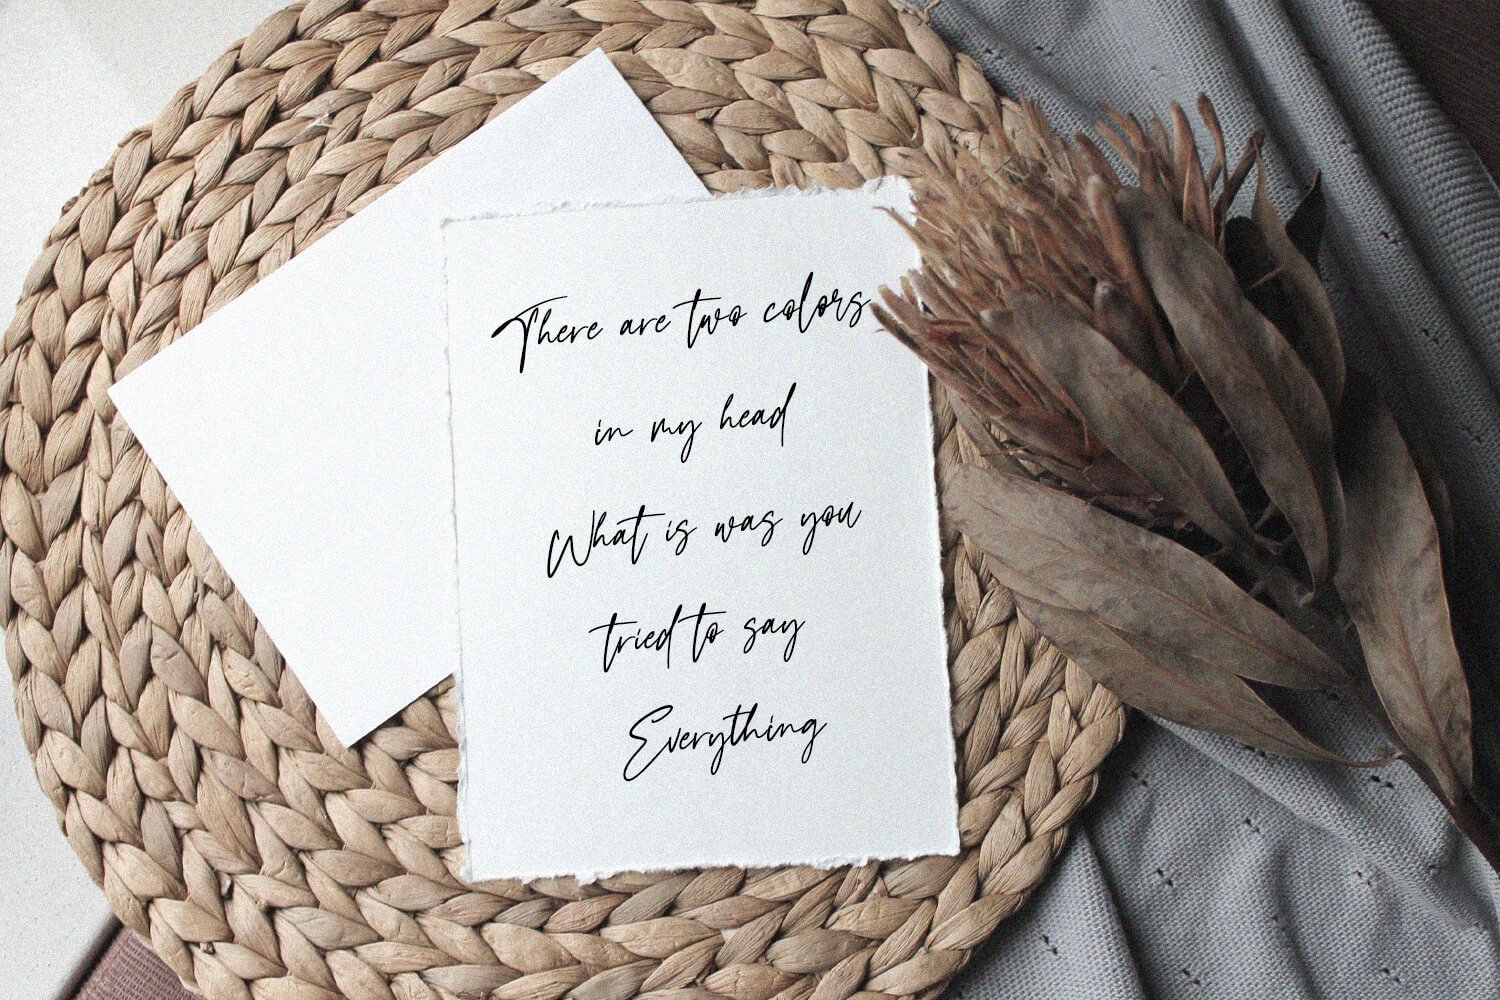 There are two colors
in my head
What is was you
tried to say
Everything